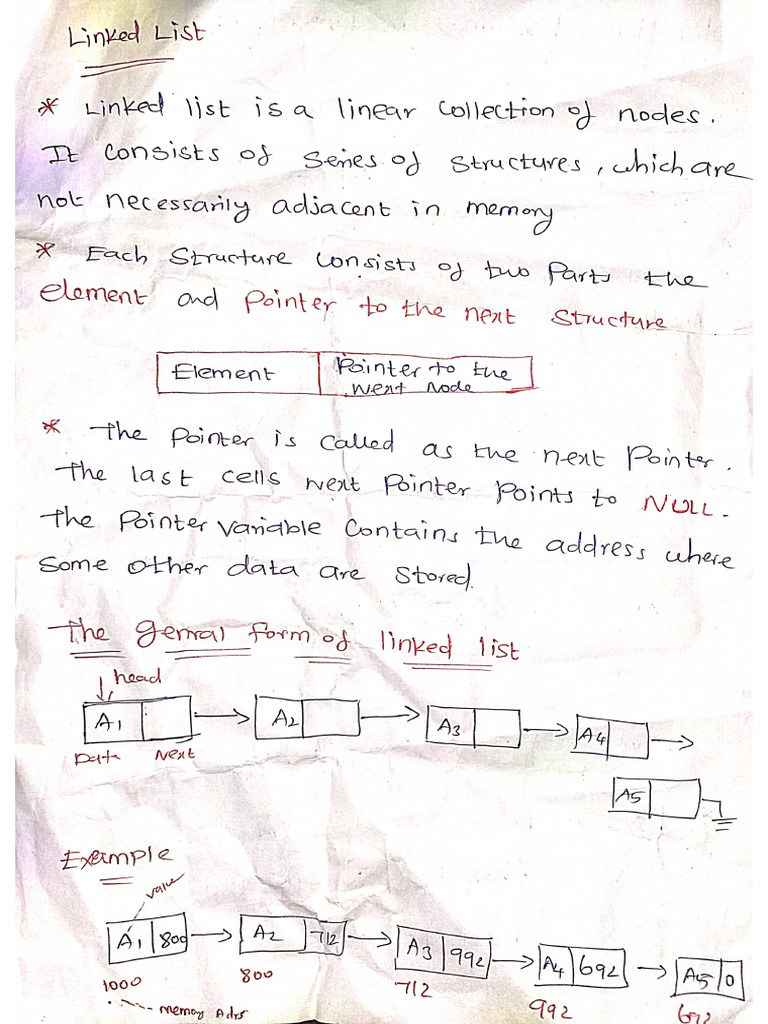 Linked List
* Linked list is a linear collection of nodes.
It consists of series of structures, which are
not necessarily adjacent in memory
* Each structure consists of two parts the
element and pointer to the next structure
Element Pointer to the
Next Node
* The pointer is called as the next pointer.
The last cells next pointer points to NULL.
The pointer variable contains the address where
some other data are stored.
The genral form of linked list
head
A1 A2 A3 A4
Data Next
A5
Example
value
A1 800 A2 712 A3 992 A4 692 A5 0
1000 800 712 992 692
memory Adrs